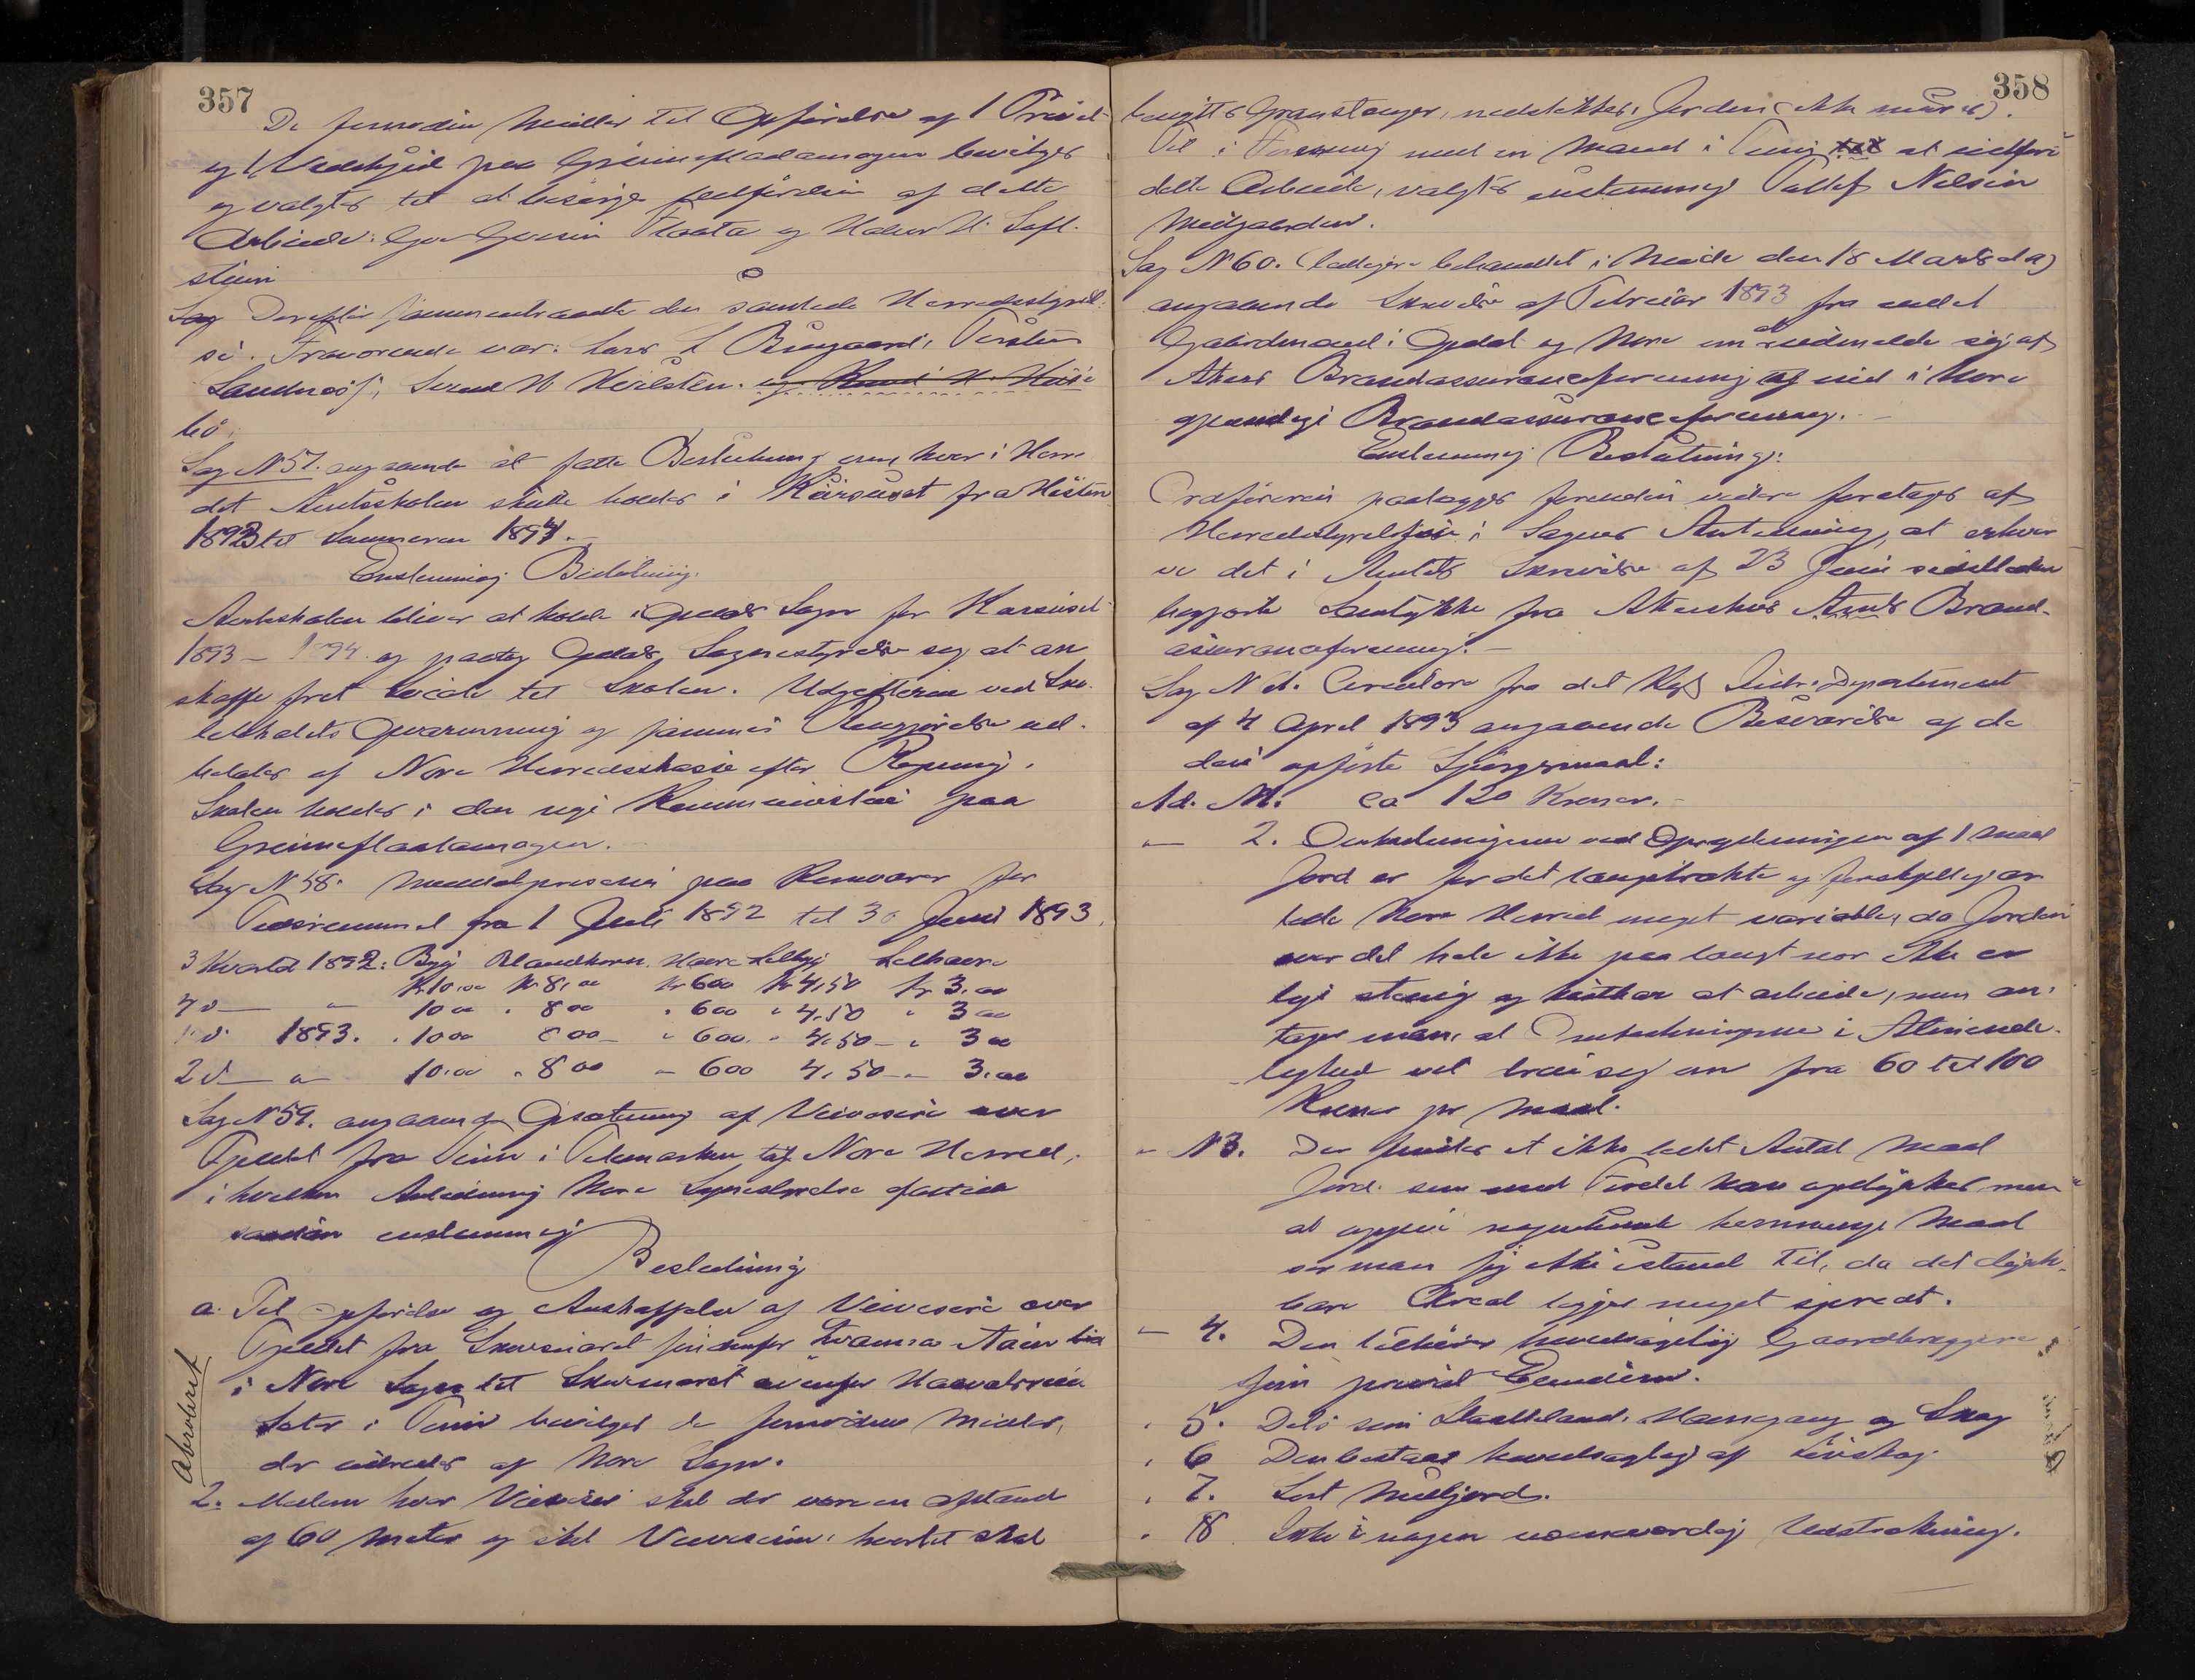 357
De fornødne Midler til Opførelse af 1 Privet
og 1 Vedskjul paa Grønneflaatamogen bevilges
og valgtes til at besørge Udførelsen af dette
Arbeide: Flaata og Halvor H. Saft-
stuen
Sag Derefter sammentraadte den samlede Herredsstyrel-
se. Fraværende var: Lars L Torsten
Svend H og Knud H.
bø.
Sag N 57. angaaende at fatte Beslutning om hvor i Herre
det Amtsskolen skulle holdes i Kursuset fra Høsten
1893 til Sommeren 1894.
Enstemmig Beslutning.
Amtsskolen bliver at holde i Opdals Sogn for Kursuset
1893 – 1894 og paatog Opdals Sognestyrelse sig at an
skaffe frit Locale til Skolen. Udgifterne ved Sko-
lelokalets Opvarmning og sammes Rengjørelse ud-
betales af Nore Herredskasse efter Regning.
Skolen holdes i den nye Kommunestue paa
Grønneflaatamogen.
Sag N 58. Middelpriserne paa Kornvarer for
Tidsrummet fra 1 Juli 1892 til 30 Juni 1893.
3 Kvartal 1892: Byg Blandkorn. Havre
Kr 10,00 Kr 8,00 Kr 600 Kr 4,50 Kr 3.00
4 d — " 10 00 . 8 00 " 600 " 4.50 " 3 00
1 d 1893. . 10 00 8 00 – " 600. " 4,50 – " 3 00
2 d — " 10.00 . 8 00 – 600 4,50 – 3.00
Sag N 59. angaaende Opsætning af Veivisere over
Fjeldet fra Tinn i Telemarken til Nore Herred,
i hvilken Anledning Nore Sognestyrelse fattede
saadan enstemmig
Beslutning
a. Til Opførelse og Anskaffelse af Veivisere over
Fjeldet fra
i Nore Sogn til
Sæter i Tinn bevilges de fornødne Midler,
der udredes af Nore Sogn.
2. Mellem hver Veiviser skal der være en Afstand
af 60 Meter og skal Veiviserne, hvortil skal
358
benyttes Granstænger, nedstikkes i Jorden (ikke mures).
Til i Forening med en Mand i Tinn at udføre
dette Arbeide, valgtes enstemmig Tollef Nilsen
Midgaarden.
Sag N 60. (tidligere behandlet i Møde den 18 Marts d A)
angaaende Skrivelse af Februar 1893 fra endel
Gaardmænd i Opdal og Nore om at udmelde sig af
Akers Brandassuranceforening og ind i Nore
gjensidige Brandassuranceforening.
Enstemmig Beslutning:
Ordføreren paalægges forinden videre foretages af
Herredsstyrelsen i Sagens Anledning, at erhver
ve det i Amtets Skrivelse af 23 Juni sidstleden
begjærte Samtykke fra Akershus Amts Brand-
assuranceforening.
Sag N 61. Circulære fra det Kgl Indre-Departement
af 4 April 1893 angaaende Besvarelse af de
deri opførte Spørgsmaal:
Ad. N 1. ca 120 Kroner.
– 2. Omkostningerne ved Opryddningen af 1 Maal
Jord er for det langstrakte og forskjelligar
tede Nore Herred meget variable, da Jorden
over det hele ikke paa langt nær ikke er
lige stenig og kostbar at arbeide, men an-
tager man, at Omkostningerne i Almindelighed
lighed vil dreie sig om fra 60 til 100
Kroner pr Maal.
– N 3. Der findes et ikke lidet Antal Maal
Jord. som med Fordel kan opdyrkes, men
at opgive nogenlunde Maal
ser man sig ikke istand til, da det dyrk-
bare Areal ligger meget spredt.
– 4. Den tilhører hovedsagelig Gaardbrugere
som privat Eiendom.
. 5. Dels som Slaatteland. Havnegang og Skog
. 6 Den bestaar hovedsagelig af Løvskog.
. 7. Sort Muldjord.
. 8 Ikke i nogen nævneværdig Udstrækning.